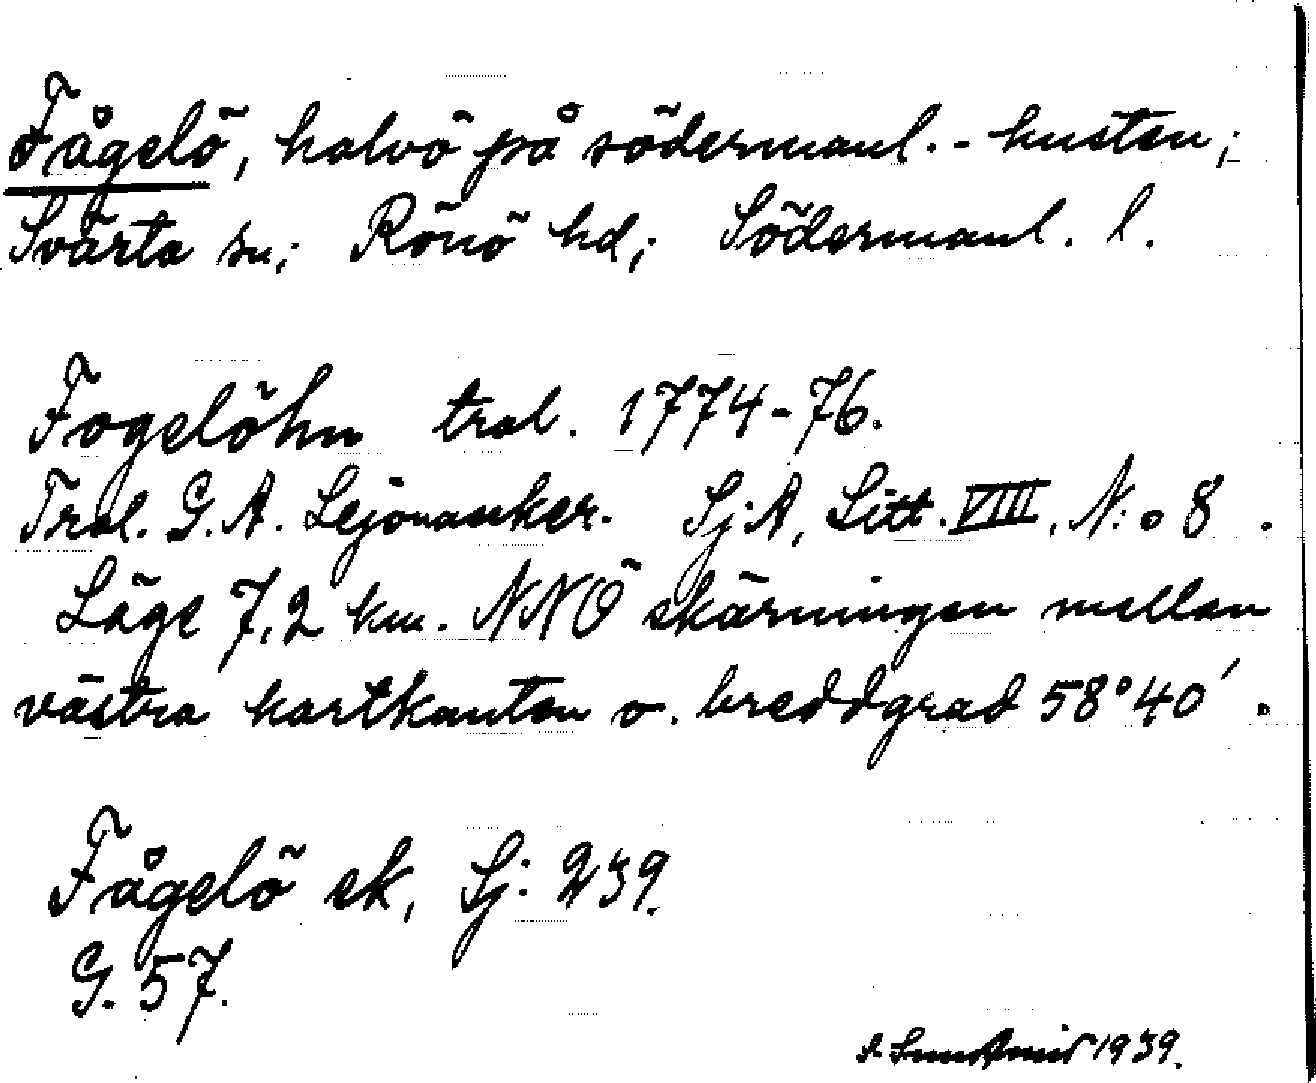 Fågelö, halvö på södermanl.-kusten;
Svärta sn; Rönö hd; Södermanl. l.
Fogelöhn tral. 1774-76.
Tral. G. A. Lejonanker. Sj:A, Litt. VIIII, N:o 8.
Läge 7,2 km. NNÖ skärningen mellan
västra kartkanten o. breddgrad 58°40'.
Fågelö ek, Sj: 239.
G. 57.
1939.